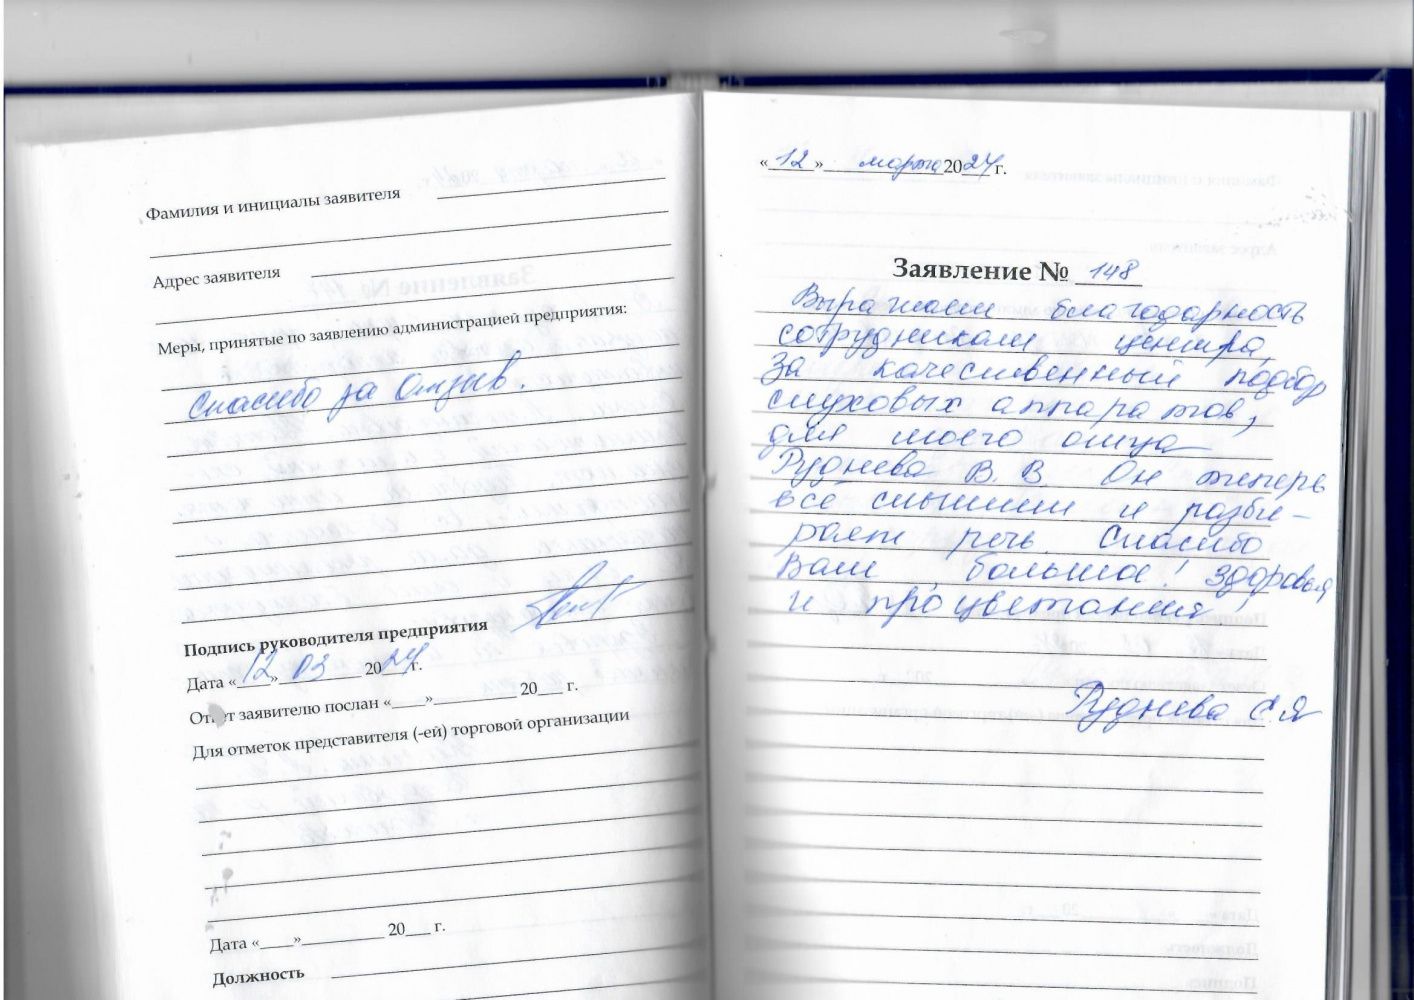 Фамилия и инициалы заявителя
Адрес заявителя
Меры, принятые по заявлению администрацией предприятия:
Спасибо за отзыв.
Подпись руководителя предприятия
Дата «12» 03 2024 г.
Ответ заявителю послан «____»__________ 20___ г.
Для отметок представителя (-ей) торговой организации
Дата «____»__________ 20___ г.
Должность
«12» марта 2024 г.
Заявление № 148
Выражаем благодарность
сотрудникам центра,
за качественный подбор
слуховых аппаратов,
для моего отца
Руднева В. В. Он теперь
всё слышит и разби-
рает речь. Спасибо
Вам большое! Здоровья
и процветания!
Руднева С.Я